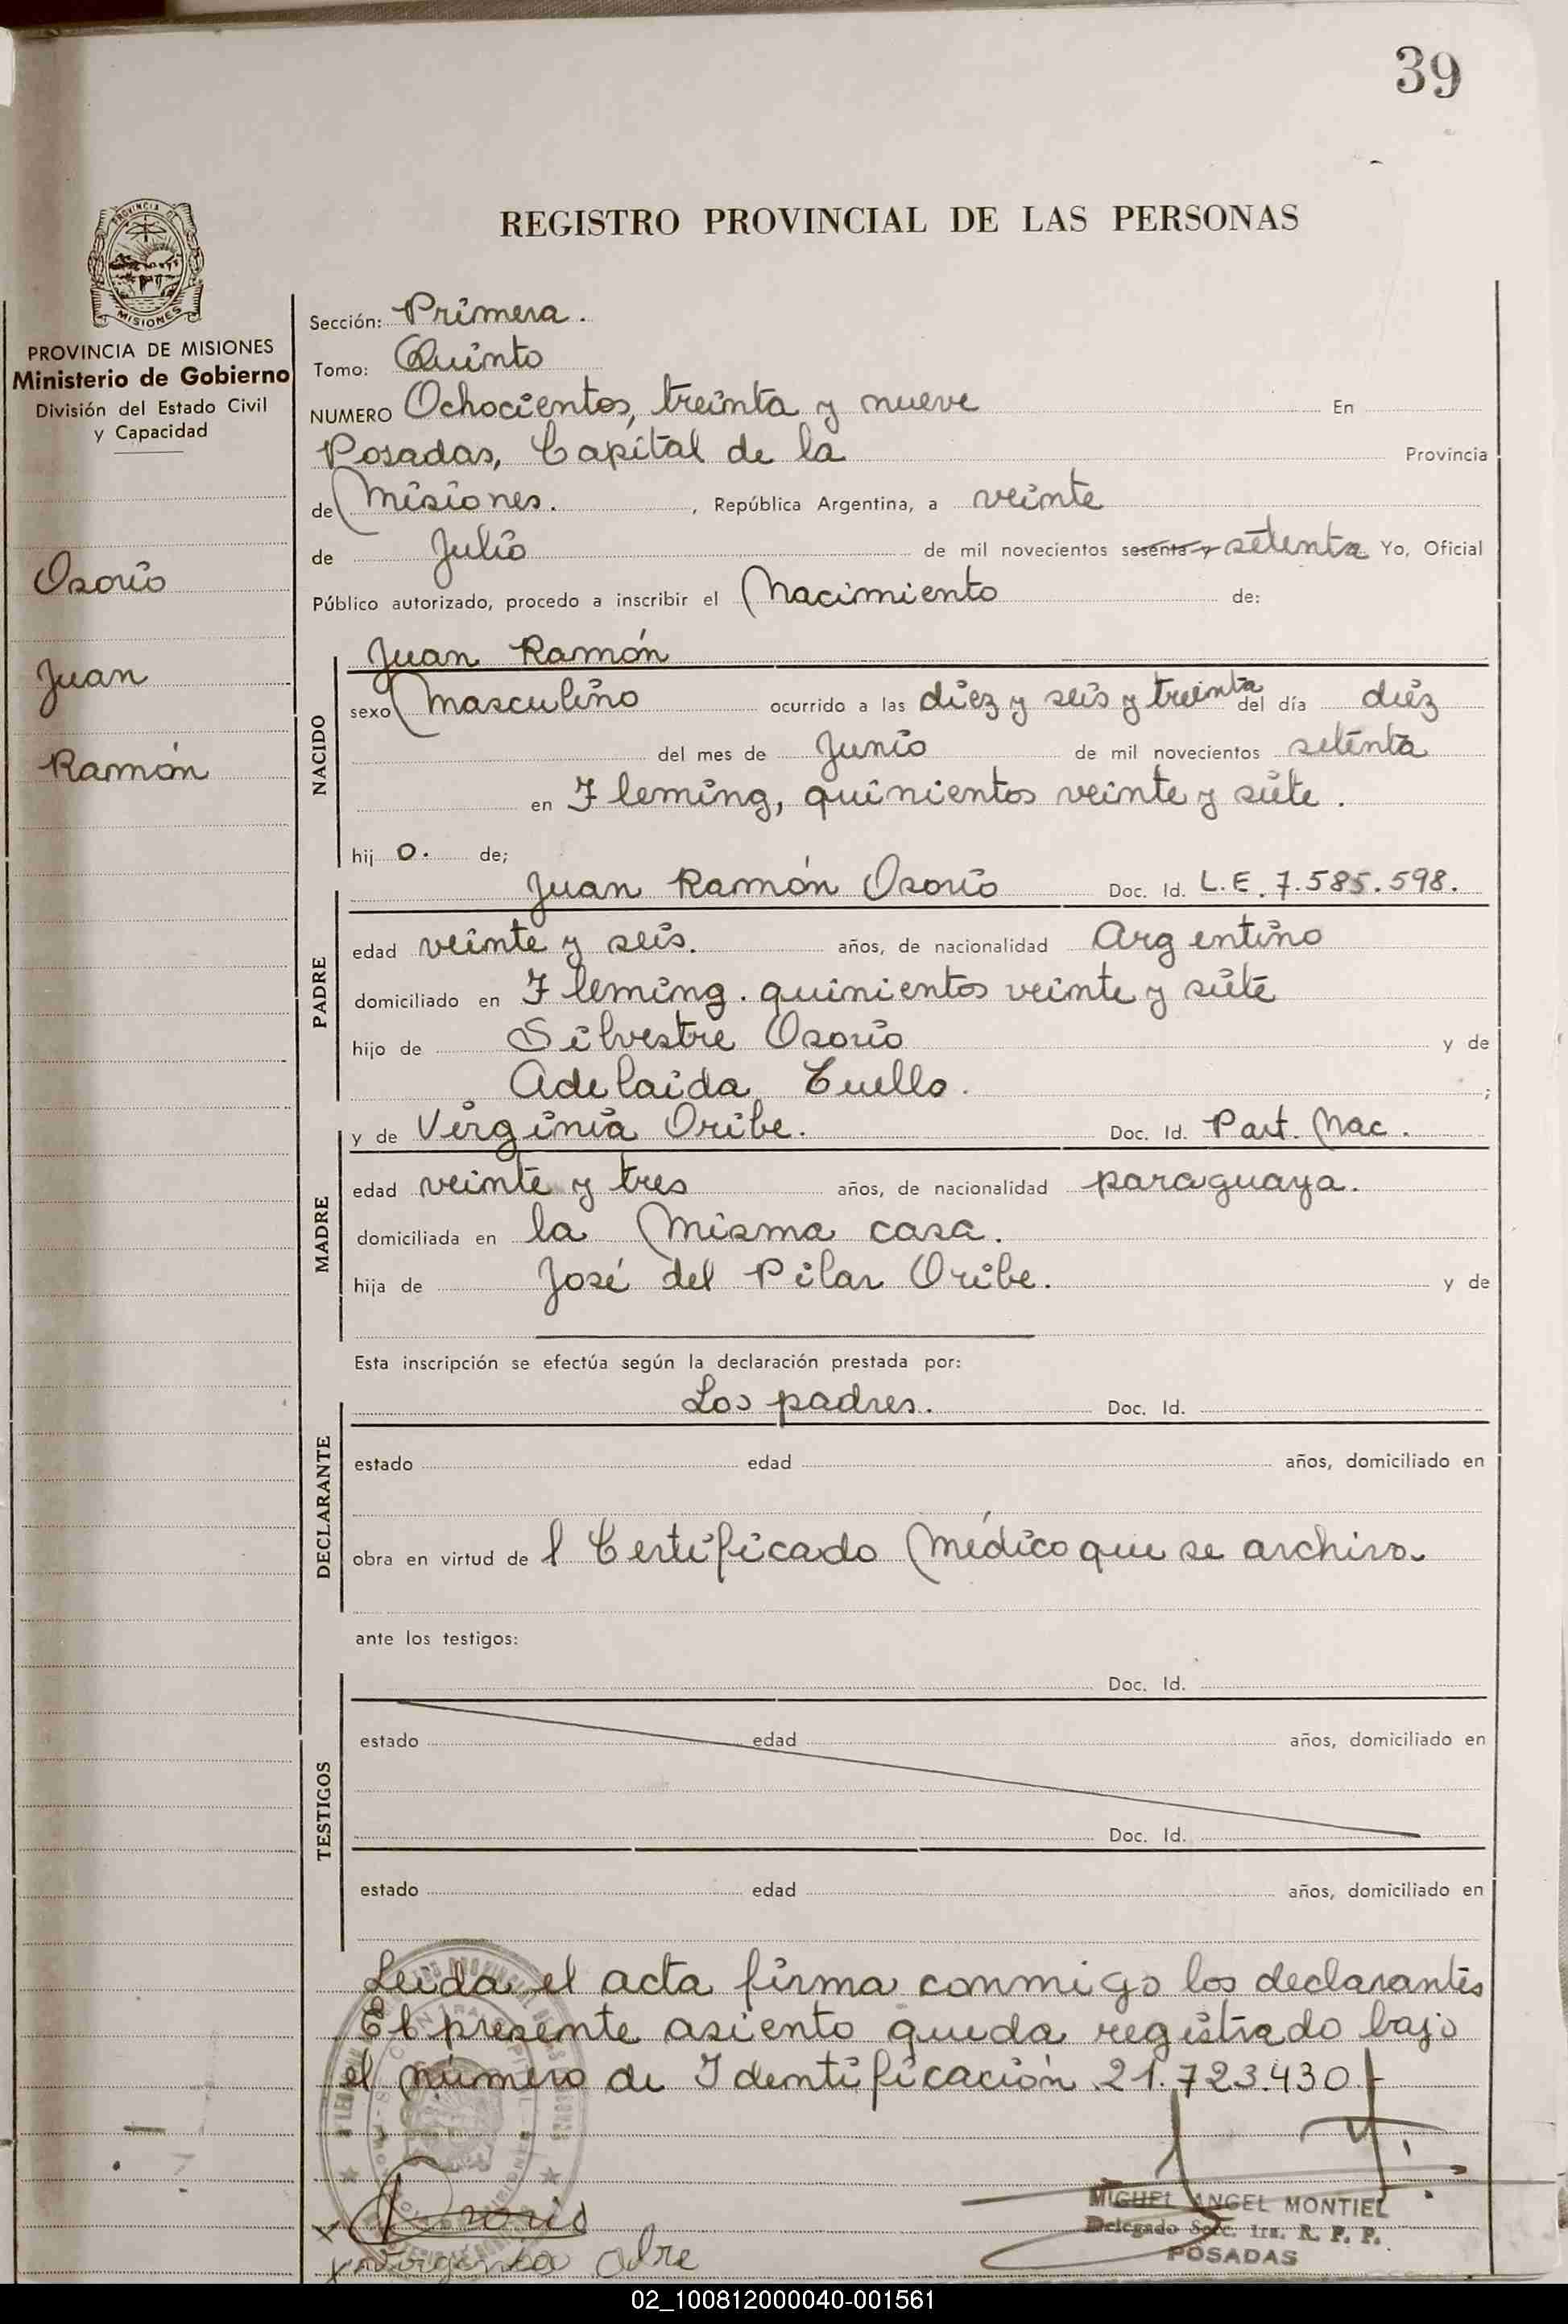 39
REGISTRO PROVINCIAL DE LAS PERSONAS
PROVINCIA DE MISIONES
PROVINCIA DE MISIONES
Ministerio de Gobierno
División del Estado Civil
y Capacidad
Osorio
Juan
Ramón
Sección: Primera.
Tomo: Quinto
NUMERO Ochocientos, treinta y nueve En
Posadas, Capital de la Provincia
de Misiones. , República Argentina, a veinte
de Julio de mil novecientos sesenta y setenta Yo, Oficial
Público autorizado, procedo a inscribir el Nacimiento de:
NACIDO
Juan Ramón
sexo Masculino ocurrido a las diez y seis y treinta del día diez
del mes de Junio de mil novecientos setenta
en Fleming, quinientos veinte y siete.
hij o. de;
PADRE
Juan Ramón Osorio Doc. Id. L.E. 7.585.598.
edad veinte y seis. años, de nacionalidad Argentino
domiciliado en Fleming. quinientos veinte y siete
hijo de Silvestre Osorio y de
Adelaida Cuello. ;
MADRE
y de Virginia Oribe. Doc. Id. Part. Nac.
edad veinte y tres años, de nacionalidad paraguaya.
domiciliada en la Misma casa.
hija de José del Pilar Oribe. y de
Esta inscripción se efectúa según la declaración prestada por:
DECLARANTE
Los padres. Doc. Id.
estado edad años, domiciliado en
obra en virtud de l Certificado Médico que se archiva
ante los testigos:
TESTIGOS
Doc. Id.
estado edad años, domiciliado en
Doc. Id.
estado edad años, domiciliado en
Leida el acta firma conmigo los declarantes
El presente asiento queda registrado bajo
el número de Identificación 21.723.430
MIGUEL ANGEL MONTIEL
Delegado Secc. 1ra. R. P. P.
POSADAS
x Osorio
x Virginia
02_100812000040-001561